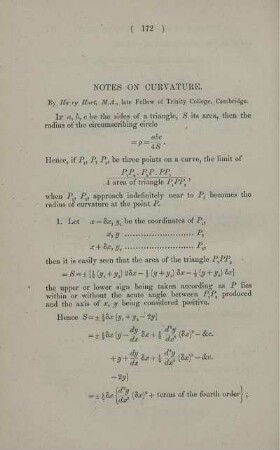 ( 172 )
NOTES ON CURVATURE.
By Harry Hart, M.A., late Fellow of Trinity College, Cambridge.
If a, b, c be the sides of a triangle, S its area, then the
radius of the circumscribing circle
= ρ = abc / 4S .
Hence, if P₁ P, P₂ be three points on a curve, the limit of
P₁P₂ . P₁P . PP₂ / 4 area of triangle P₁PP₂ ,
when P₁, P₂, approach indefinitely near to P, becomes the
radius of curvature at the point P.
1. Let x − δx, y₁ be the coordinates of P₁,
x, y .................... P,
x + δx, y₂ .................... P₂,
then it is easily seen that the area of the triangle P₁PP₂
= S = ± [½ (y₁ + y₂) 2δx − ½ (y + y₁) δx − ½ (y + y₂) δx]
the upper or lower sign being taken according as P lies
within or without the acute angle between P₁P₂ produced
and the axis of x, y being considered positive.
Hence S = ± ½δx [y₁ + y₂ − 2y]
= ± ½δx {y − dy/dx δx + ½ d²y/dx² (δx)² − &c.
+ y + dy/dx δx + ½ d²y/dx² (δx)² − &c.
− 2y}
= ± ½δx {d²y/dx² (δx)² + terms of the fourth order} ;